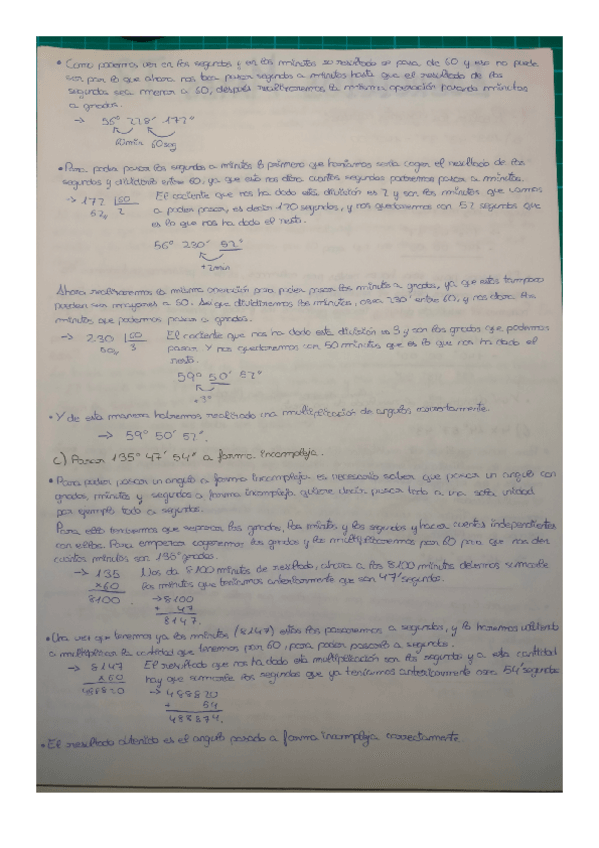 • Como podemos ver en los segundos y en los minutos su resultado se pasa de 60 y eso no puede
ser, por lo que ahora nos toca pasar segundos a minutos hasta que el resultado de los
segundos sea menor a 60, después realizaremos la misma operación pasando minutos
a grados.
→ 56° 228' 172"
60min 60seg
• Para poder pasar los segundos a minutos lo primero que haríamos sería coger el resultado de los
segundos y dividirlo entre 60, ya que eso nos dira cuantos segundos podremos pasar a minutos.
→ 172 |60 El cociente que nos ha dado esta división es 2 y son los minutos que vamos
52 2 a poder pasar, es decir 120 segundos, y nos quedaremos con 52 segundos que
es lo que nos ha dado el resto.
56° 230' 52"
+2min
Ahora realizaremos la misma operación para poder pasar los minutos a grados, ya que estos tampoco
pueden ser mayores a 60. Así que dividiremos los minutos, osea 230' entre 60, y nos dira los
minutos que podemos pasar a grados.
→ 230 |60 El cociente que nos ha dado esta división es 3 y son los grados que podemos
50 3 pasar. Y nos quedaremos con 50 minutos que es lo que nos ha dado el
resto.
59° 50' 52"
+3°
• Y de esta manera habremos realizado una multiplicación de angulos correctamente.
→ 59° 50' 52".
c) Pasar 135° 47' 54" a forma incompleja.
• Para poder pasar un angulo a forma incompleja es necesario saber que pasar un angulo con
grados, minutos y segundos a forma incompleja quiere decir pasar todo a una sola unidad
por ejemplo todo a segundos.
Para ello tendremos que separar los grados, los minutos y los segundos y hacer cuentas independientes
con ellos. Para empezar cogeremos los grados y los multiplicaremos por 60 para que nos den
cuantos minutos son 135° grados.
→ 135 Nos da 8100 minutos de resultado, ahora a los 8100 minutos debemos sumarle
x60 los minutos que teníamos anteriormente que son 47' segundos.
8100 . → 8100
+ 47
8147.
• Una vez que tenemos ya los minutos (8147) estos los pasaremos a segundos, y lo haremos volviendo
a multiplicar la cantidad que tenemos por 60, para poder pasarlo a segundos.
→ 8147 El resultado que nos ha dado esta multiplicación son los segundos y a esta cantidad
x60 hay que sumarle los segundos que ya teníamos anteriormente osea 54" segundos
488820 → 488820
+ 54
488874.
• El resultado obtenido es el angulo pasado a forma incompleja correctamente.